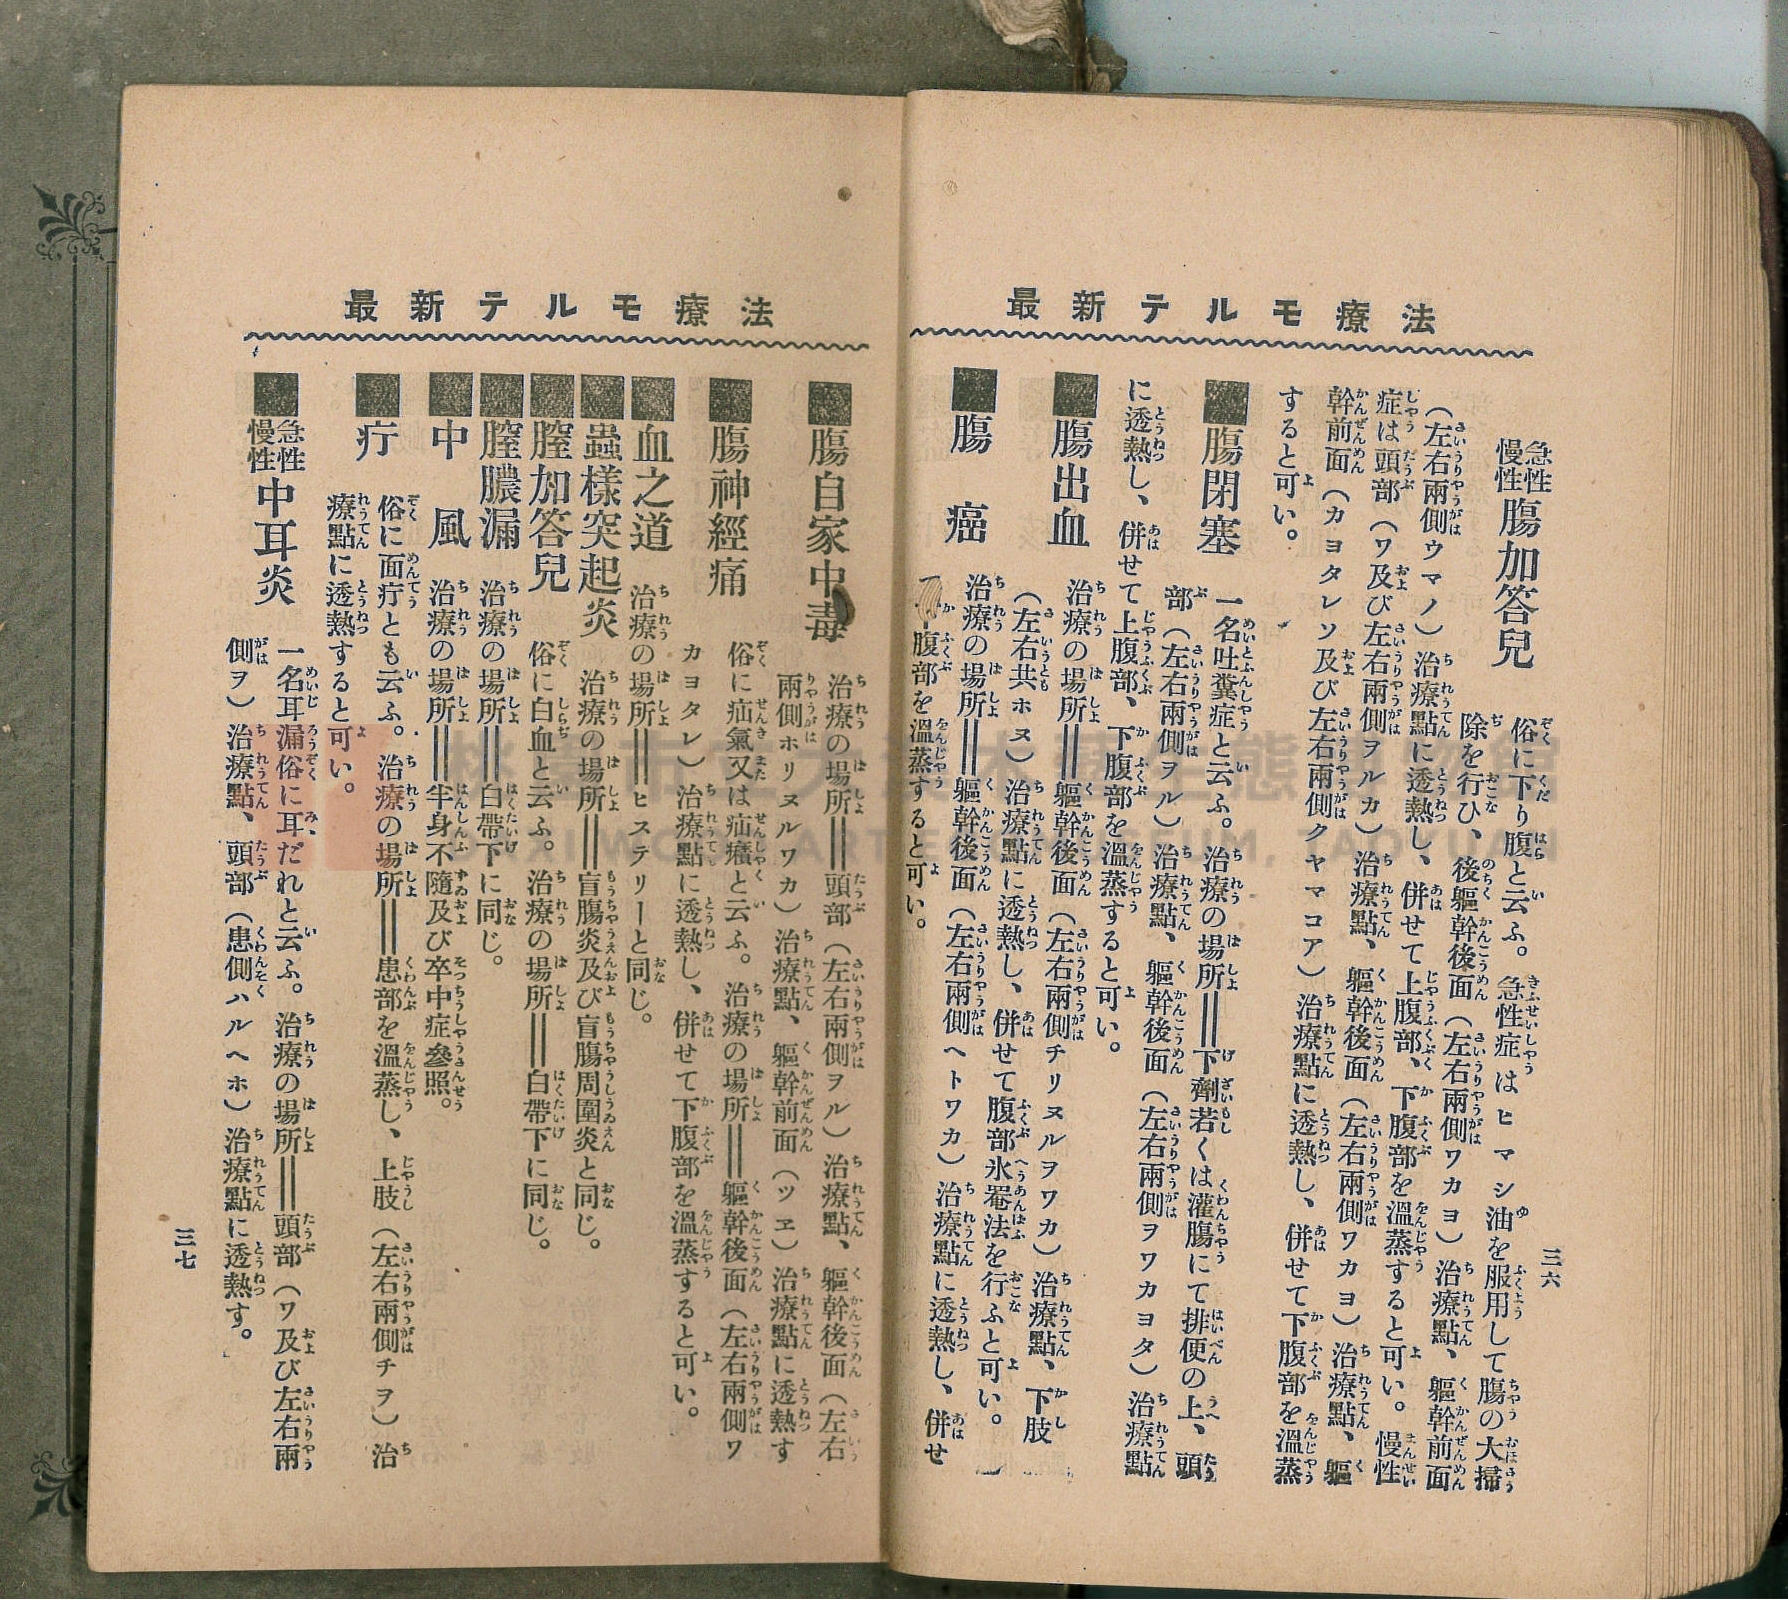 最新テルモ療法
急性慢性腸加答兒 俗に下り腹と云ふ。急性症はヒマシ油を服用して腸の大掃
除を行ひ、後軀幹後面（左右兩側ワカヨ）治療點、軀幹前面
（左右兩側ウマノ）治療點に透熱し、併せて上腹部、下腹部を溫蒸すると可い。慢性
症は頭部（ワ及び左右兩側ヲルカ）治療點、軀幹後面（左右兩側ワカヨ）治療點、軀
幹前面（カヨタレソ及び左右兩側クヤマコア）治療點に透熱し、併せて下腹部を溫蒸
すると可い。
■腸閉塞 一名吐糞症と云ふ。治療の場所＝下劑若くは灌腸にて排便の上、頭
部（左右兩側ヲル）治療點、軀幹後面（左右兩側ヲワカヨタ）治療點
に透熱し、併せて上腹部、下腹部を溫蒸すると可い。
■腸出血 治療の場所＝軀幹後面（左右兩側チリヌルヲワカ）治療點、下肢
（左右共ホヌ）治療點に透熱し、併せて腹部氷罨法を行ふと可い。
■腸癌 治療の場所＝軀幹後面（左右兩側ヘトワカ）治療點に透熱し、併せ
腹部を溫蒸すると可い。
三六
最新テルモ療法
■腸自家中毒 治療の場所＝頭部（左右兩側ヲル）治療點、軀幹後面（左右
兩側ホリヌルワカ）治療點、軀幹前面（ツヱ）治療點に透熱す
■腸神經痛 俗に疝氣又は疝癪と云ふ。治療の場所＝軀幹後面（左右兩側ワ
カヨタレ）治療點に透熱し、併せて下腹部を溫蒸すると可い。
■血之道 治療の場所＝ヒステリーと同じ。
■蟲樣突起炎 治療の場所＝盲腸炎及び盲腸周圍炎と同じ。
■膣加答兒 俗に白血と云ふ。治療の場所＝白帶下に同じ。
■膣膿漏 治療の場所＝白帶下に同じ。
■中風 治療の場所＝半身不隨及び卒中症參照。
■疔 俗に面疔とも云ふ。治療の場所＝患部を溫蒸し、上肢（左右兩側チヲ）治
療點に透熱すると可い。
■急性慢性中耳炎 一名耳漏俗に耳だれと云ふ。治療の場所＝頭部（ワ及び左右兩
側ヲ）治療點、頭部（患側ハルヘホ）治療點に透熱す。
三七